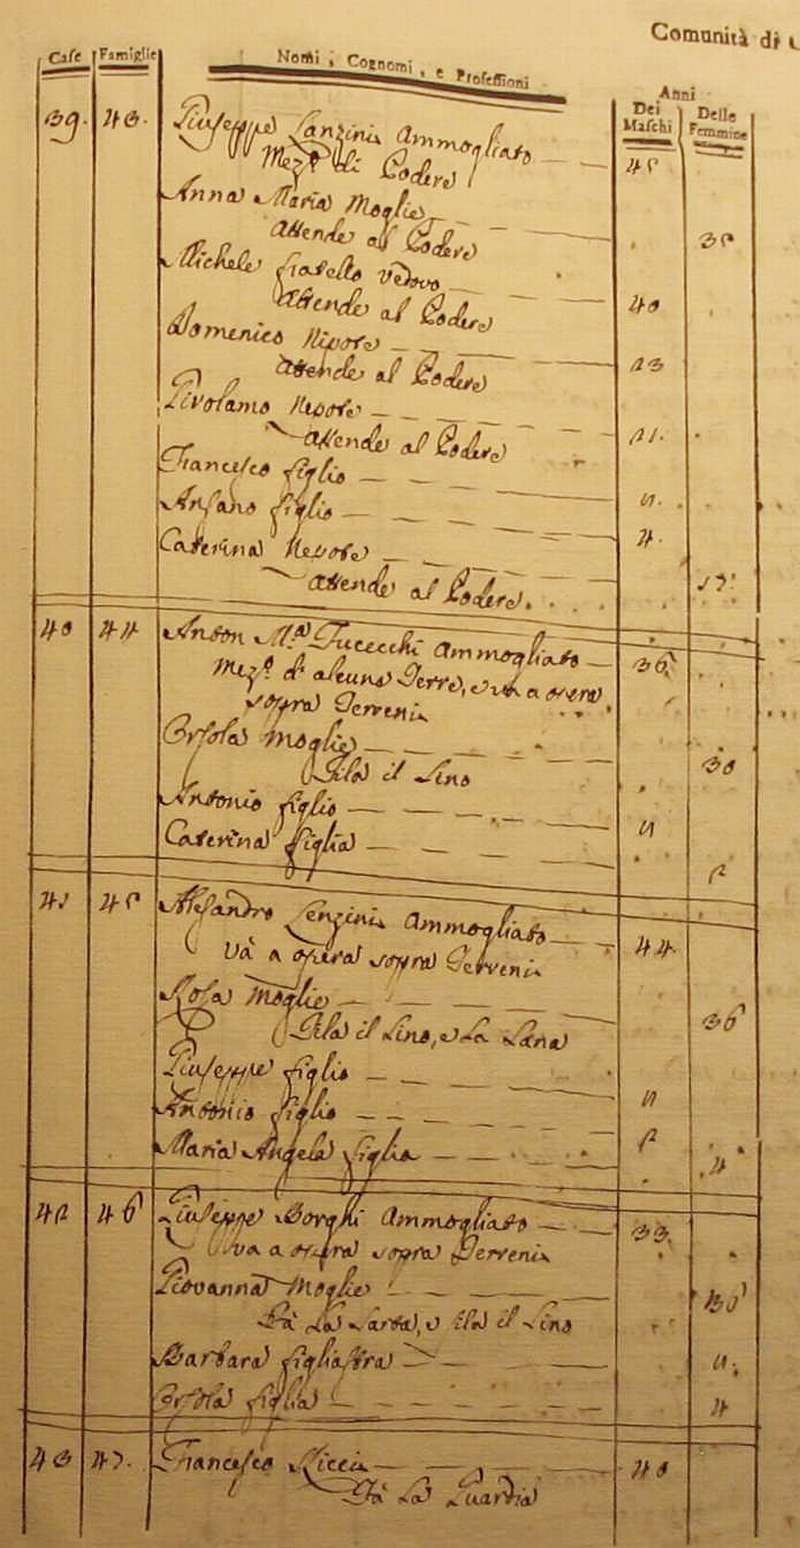 Comunità di
Case Famiglie Nomi, Cognomi, e Professioni Anni
Dei Maschi Delle Femmine
39. 43. Giuseppe Lanzini Ammogliato
Mezº di Podere 45
Anna Maria Moglie
Attende al Podere 35
Michele fratello vedovo
Attende al Podere 40
Domenico Nipote
Attende al Podere 23
Girolamo Nipote
Attende al Podere 21.
Francesco figlio
Ansano figlio
Caterina Nepote 4.
attende al Podere. 17.
40 44 Anton Mª Ammogliato 36.
Mezº di alcune Terre, e va a opera
sopra Terreni
Orsola Moglie 30
Fila il Lino
Antonio figlio
Caterina figlia
41 45 Alesandro Lenzini Ammogliato 44.
Và a opera sopra Terreni
Rosa Moglie 36
Fila il Lino, e La Lana
Giuseppe figlio
Antonio figlio
Maria Angela figlia 4
42 46 Giuseppe Borghi Ammogliato 33.
va a opera sopra Terreni
Giovanna Moglie
Fà La Sarta, e fila il Lino
Barbara figliastra
Orsola figlia 4
43 47. Francesco Ricci 40
Fà La Guardia